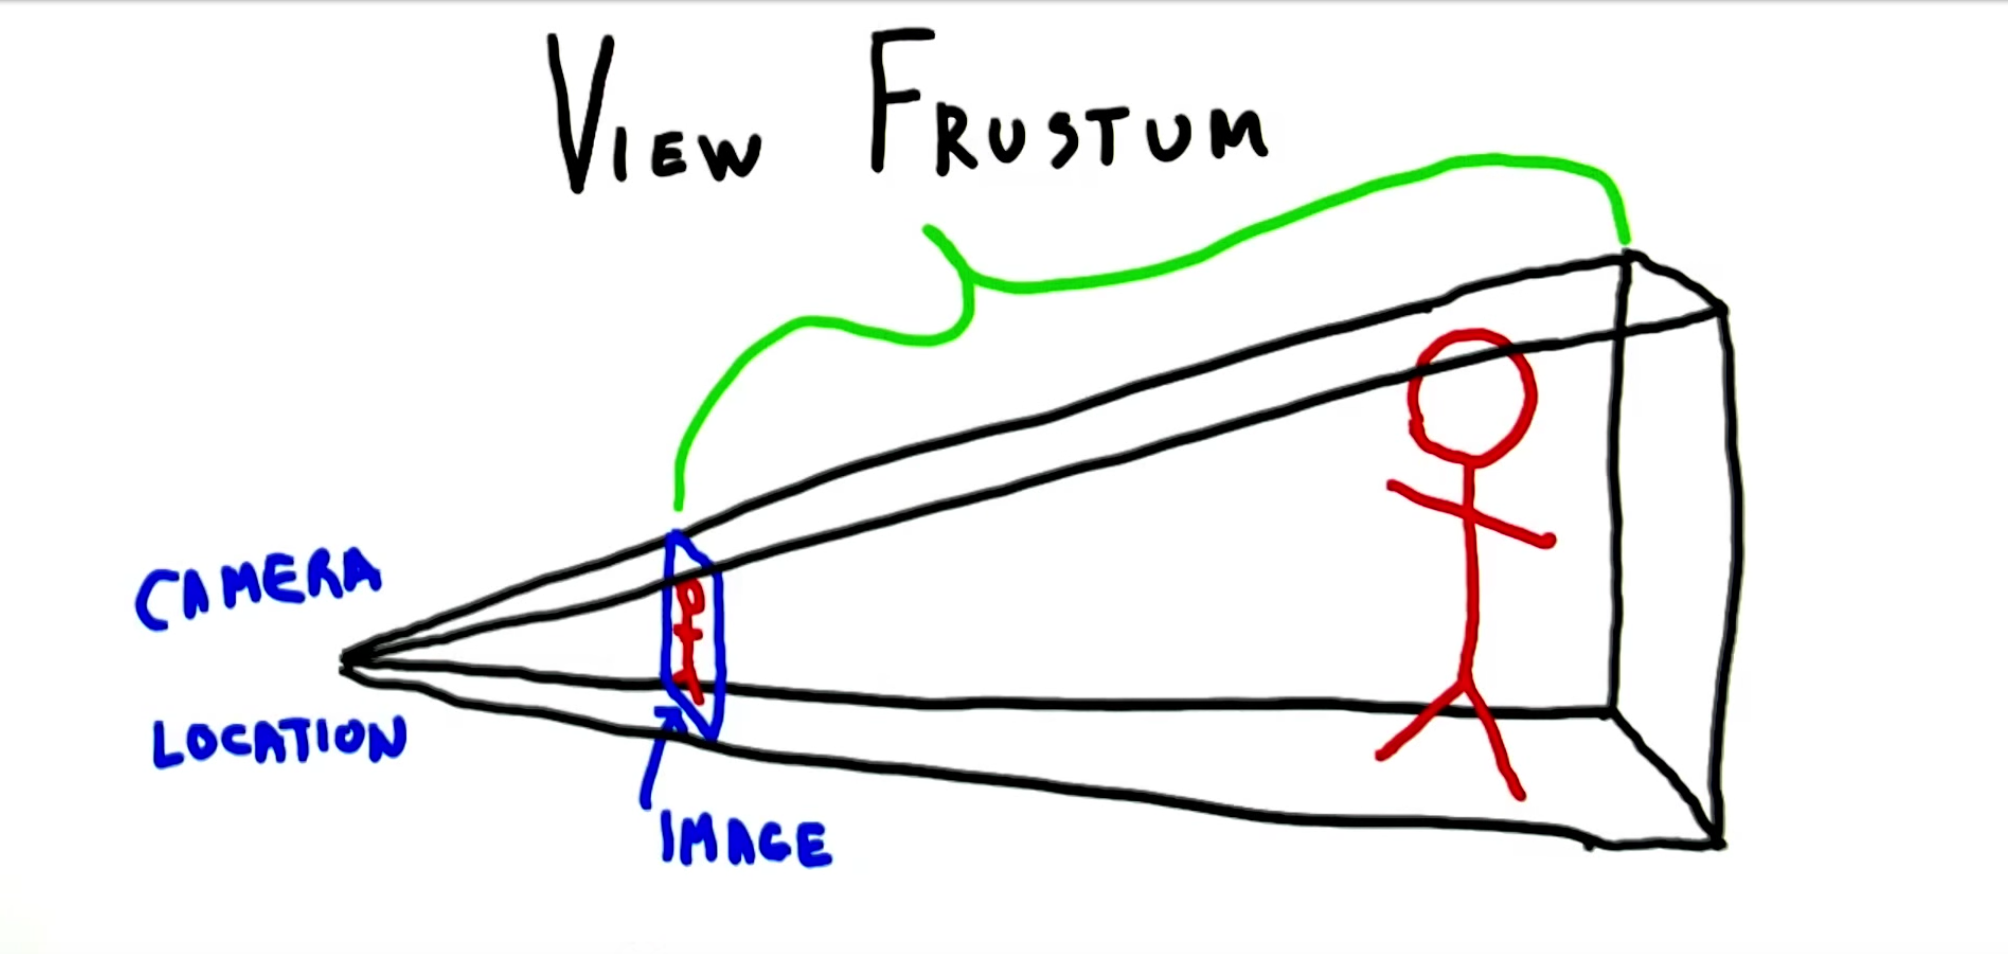 VIEW FRUSTUM
CAMERA
LOCATION
IMAGE